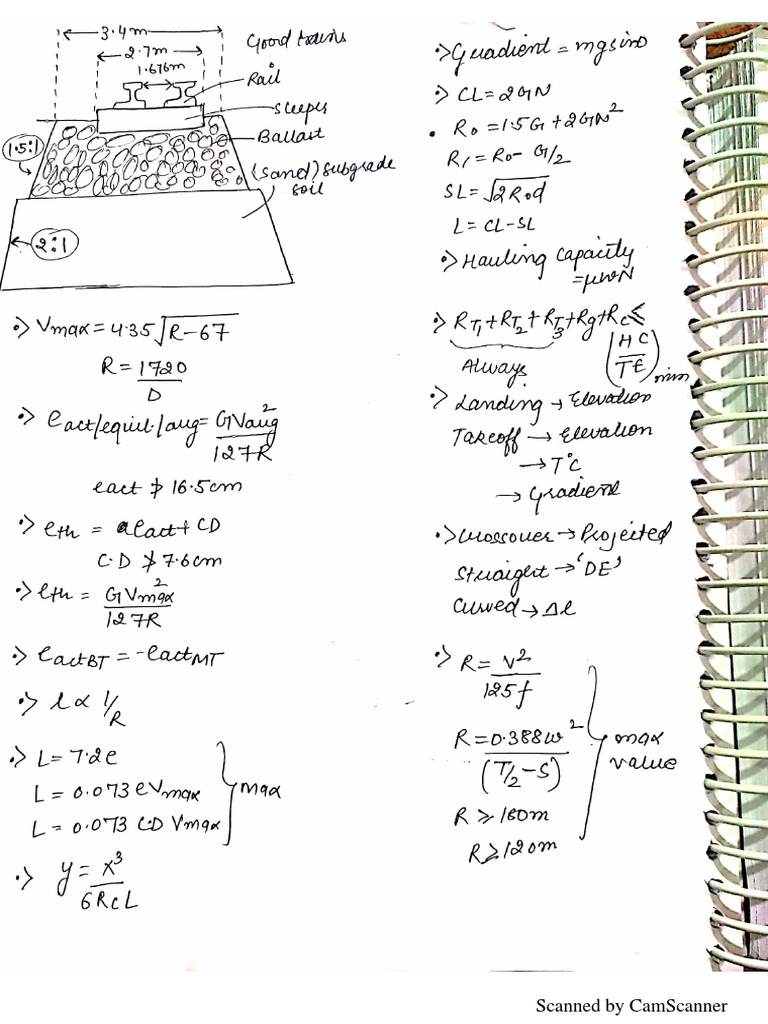 3.4m
2.7m
1.676m
Good trains
Rail
Sleeper
Ballast
(Sand) Subgrade
soil
1.5:1
2:1
Vmax = 4.35√R-67
R = 1720/D
eact/equil./avg = GVavg²/127R
eact ≯ 16.5cm
eth = eact + CD
C.D ≯ 7.6cm
eth = GVmax²/127R
eactBT = -eactMT
l ∝ 1/R
L = 7.2e
L = 0.073 eVmax
L = 0.073 CD Vmax
max
y = x³/6RcL
Gradient = mgsinθ
CL = 2GN
Ro = 1.5G + 2GN²
R1 = Ro - G/2
SL = √2Rod
L = CL-SL
Hauling Capacity
= μwN
RT1 + RT2 + RT3 + Rg + Rc ≤
(HC/TE)min
Always
Landing → Elevation
Takeoff → Elevation
→ T°C
→ Gradient
Crossover → Projected
Straight → 'DE'
Curved → Δl
R = V²/125f
R = 0.388w²/(T/2 - S)
R ≥ 180m
R ≥ 120m
max
value
Scanned by CamScanner